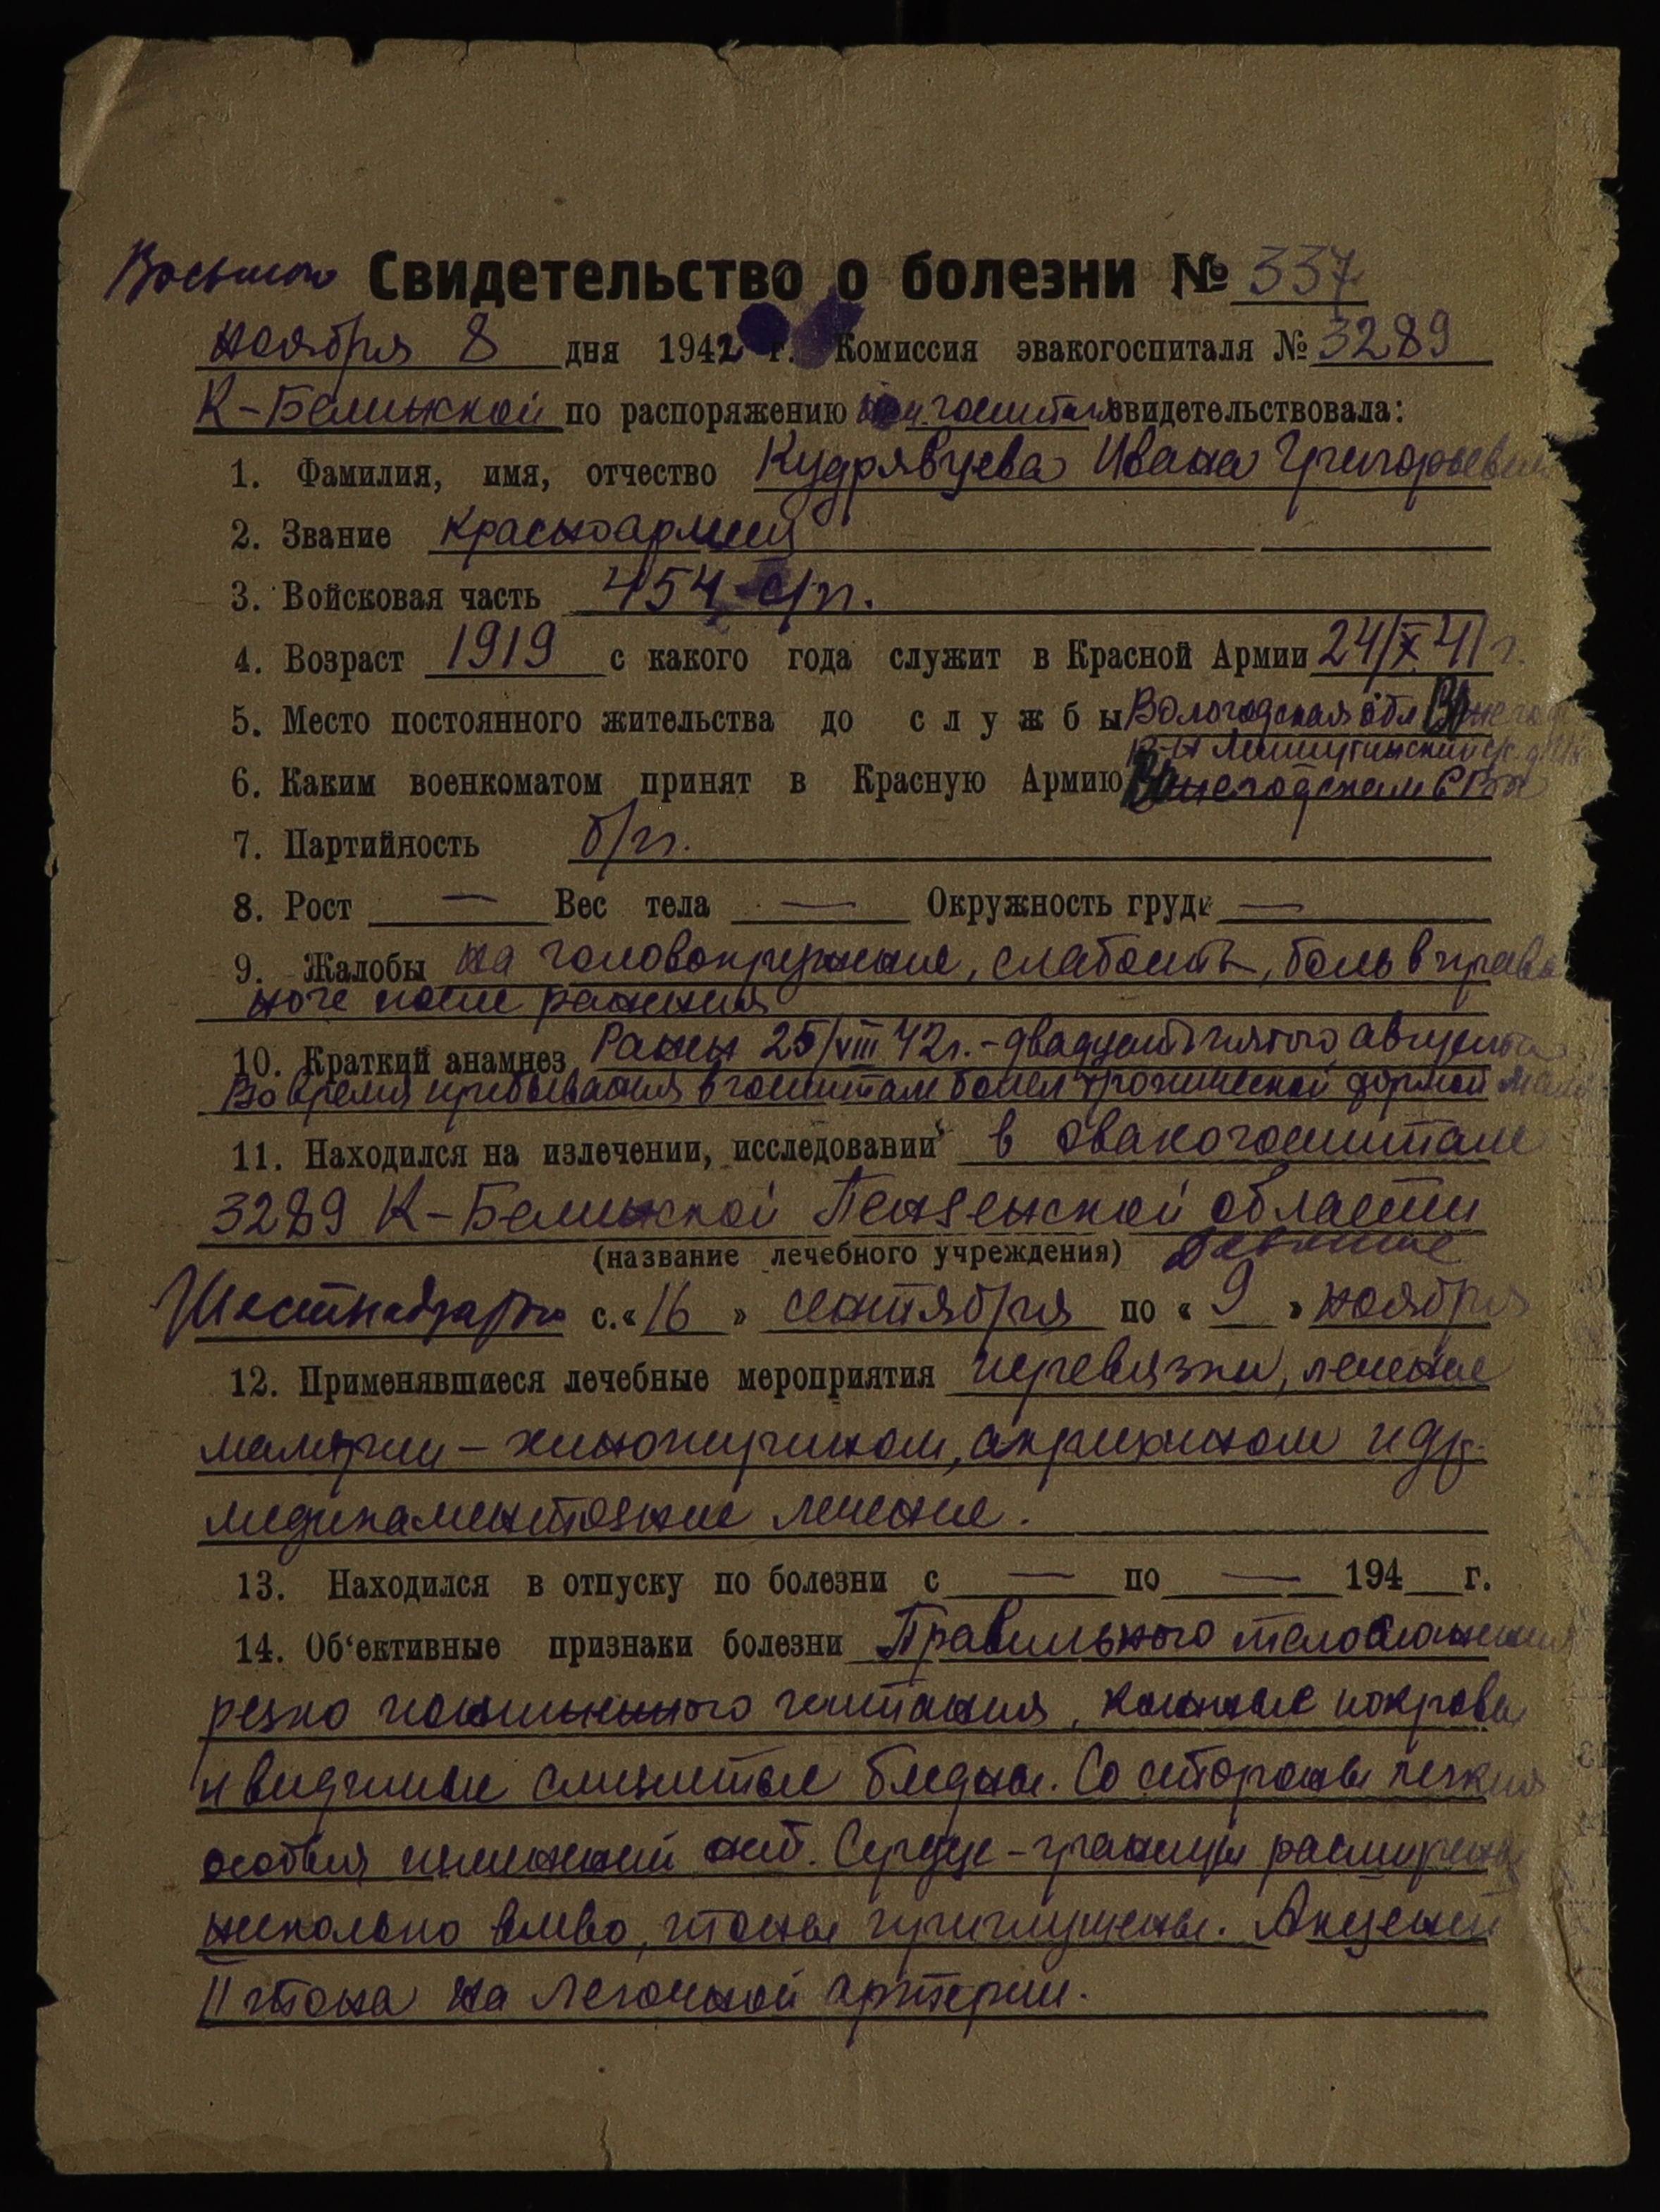 Восьмого Свидетельство о болезни № 337
ноября 8 дня 1942 г. Комиссия эвакогоспиталя № 3289
К-Белинской по распоряжению нач. госпиталя свидетельствовала:
1. Фамилия, имя, отчество Кудрявцева Ивана Григорьевич
2. Звание Красноармеец
3. Войсковая часть 454 с/п.
4. Возраст 1919 с какого года служит в Красной Армии 24/X 41 г.
5. Место постоянного жительства до службы Вологодская обл Вожегод
р-н
6. Каким военкоматом принят в Красную Армию Вожегодским РВК
7. Партийность б/п.
8. Рост — Вес тела — Окружность груди —
9. Жалобы на головокружение, слабость, боль в право
ноге после ранения
10. Краткий анамнез Ранен 25/VIII 42г. - двадцать пятого августа
Во время пребывания в госпитале болел хронической формой
11. Находился на излечении, исследовании в эвакогоспитале
3289 К-Белинской Пензенской области
(название лечебного учреждения) девятое
Шестнадцатого с «16» сентября по «9» ноября
12. Применявшиеся лечебные мероприятия перевязки, лечение
малярии - хинопирином, акрихином и др.
медикаментозное лечение.
13. Находился в отпуску по болезни с — по — 194 г.
14. Об'ективные признаки болезни Правильного телосложения
резко пониженного питания, кожные покровы
и видимые слизистые бледны. Со стороны легких
особых изменений нет. Сердце - границы расширены
несколько влево, тоны приглушены. Акцент
II тона на легочной артерии.